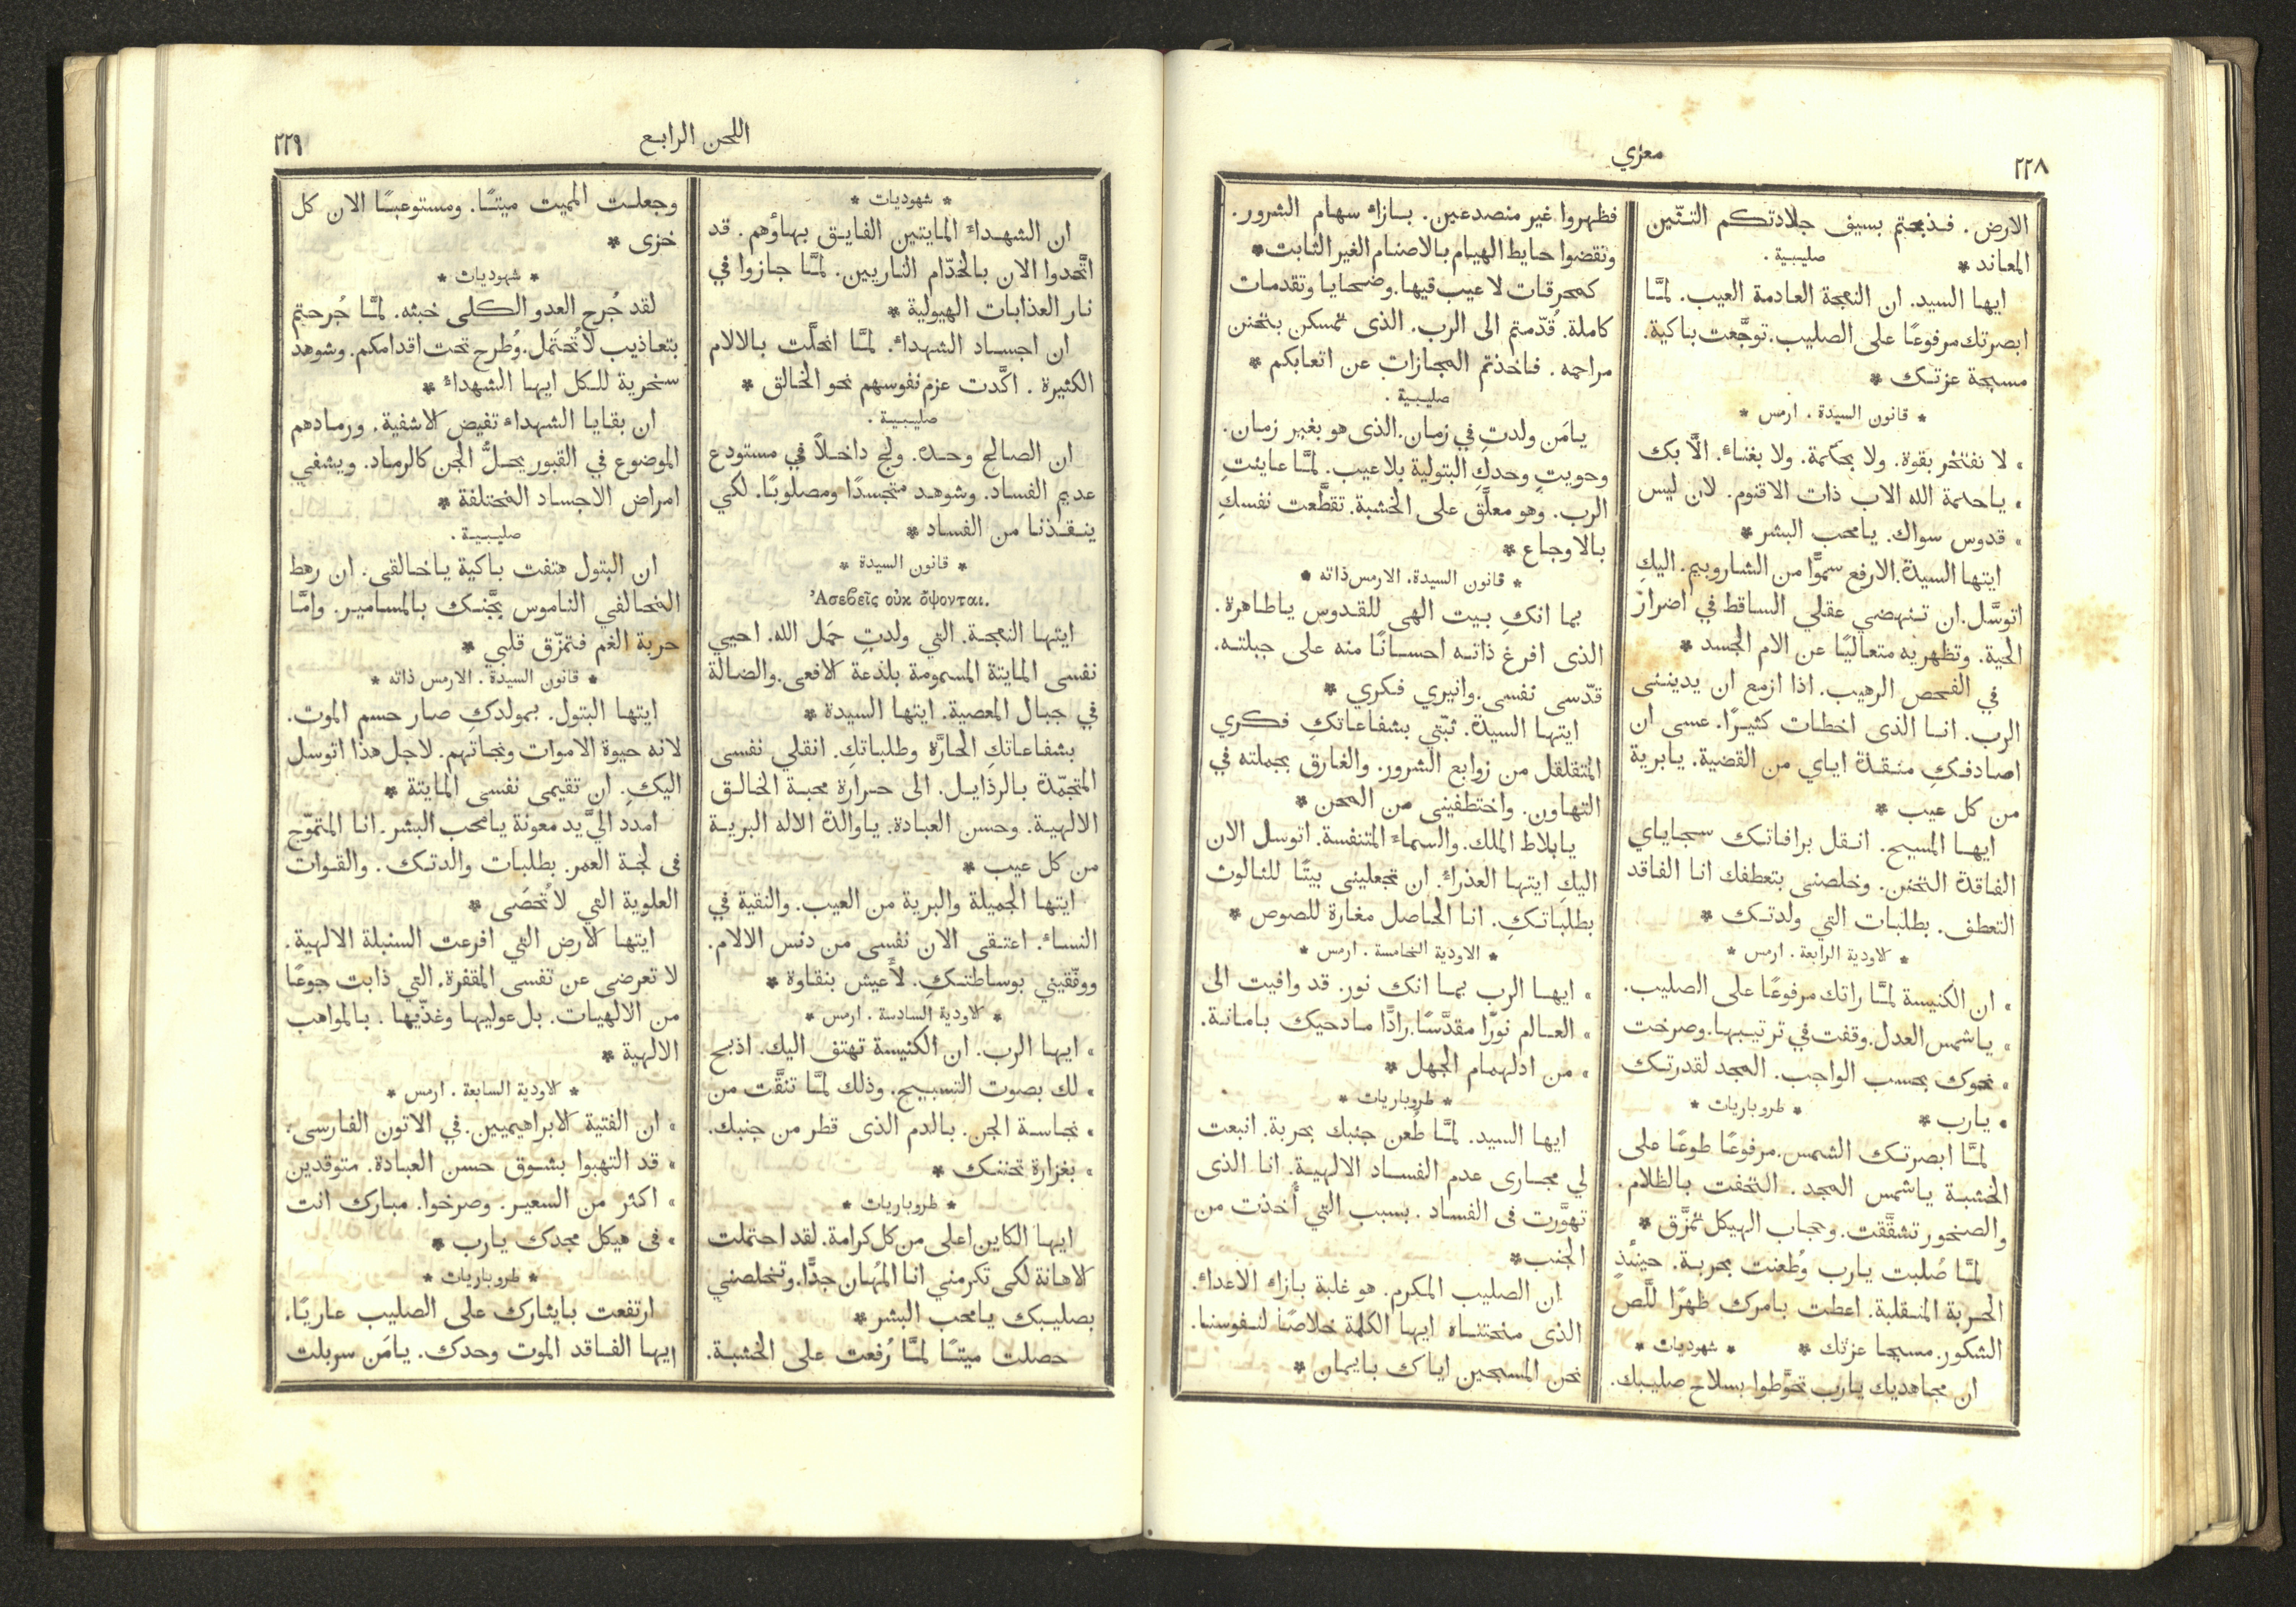 ٢٢٨
معزي
الارض. فـذبحتم بسيف جلادتكم التنّين
المعاند *
صليبية.
ايها السيد. ان النعجة العادمة العيب. لمَّا
ابصرتك مرفوعًا على الصليب. توجَّعت باكية.
مسبحة عزتـك *
* قانون السيدة. ارمس *
» لا نفتخر بقوة. ولا بحكمة. ولا بغناء. الَّا بك
» ياحكمة الله الاب ذات الاقنوم. لان ليس
» قدوس سواك. يامحب البشر *
ايتها السيدة. الارفع سموًّا من الشاروبيم. اليكِ
اتوسَّل. ان تـنهضي عقلي الساقط في اضرار
الحية. وتظهريه متعاليًا عن الام الجسد *
في الفحص الرهيب. اذا ازمع ان يدينـنى
الرب. انـا الذى اخطات كثيـرًا. عسى ان
اصادفـكِ منـقـذة اياي من القضية. يابرية
من كل عيب *
ايهـا المسيح. انـقل برافاتـك سجاياي
الفاقدة التحنن. وخلصنى بتعطفك انا الفاقد
التعطف. بطلبات التي ولدتـك *
* الاودية الرابعة. ارمس *
» ان الكنيسة لمَّا راتك مرفوعًا على الصليب.
» ياشمس العدل. وقفت في ترتيبها. وصرخت
» نحوك بحسب الواجب. المجد لقدرتـك
» يارب *
* طروباريات *
لمَّا ابصرتـك الشمس. مرفوعًا طوعًا على
الخشبـة ياشمس المجد. التحفت بالظلام.
والصخور تشقَّقت. وحجاب الهيكل تمزَّق *
لمَّـا صُلبت يارب وطُعنت بحربـة. حينئذٍ
الحـربة المنـقلبة. اعطت بامرك ظهرًا للّص
الشكور. مسبحا عزتك *
* شهوديات *
ان مجاهديك يارب تحوَّطوا بسلاح صليبك.
فظهروا غير منصدعين. بـازاء سهام الشرور.
ونقضوا حايط الهيام بالاصنام الغير الثابت *
كمحرقات لا عيب فيها. وضحايا وتقدمات
كاملة. قُدّمتم الى الرب. الذى تمسكن بتحنن
مراحمه. فاخذتم المجازات عن اتعابكم *
صليبية.
يامَن ولدتِ في زمان. الذى هو بغير زمان.
وحويتِ وحدكِ البتولية بلا عيب. لمَّا عاينتِ
الرب. وهو معلَّق على الخشبة. تقطَّعت نفسكِ
بالاوجاع *
* قانون السيدة. الارمس ذاته *
بما انكِ بيت الهى للقدوس ياطاهرة.
الذى افرغ ذاتـه احسـانًا منه على جبلتـه.
قدّسى نفسى. وانيري فـكري *
ايتهـا السيدة. ثبّتي بشفاعاتكِ فكري
المتقلقل من زوابع الشرور. والغارق بجملته في
التهاون. واختطفينى من المحن *
يابلاط الملك. والسماء المتنفسة. اتوسل الان
اليكِ ايتها العذراء. ان تجعلينى بيتًا للثالوث
بطلباتـكِ. انـا الحاصل مغارة للصوص *
* الاودية الخامسة. ارمس *
» ايهـا الرب بمـا انك نور. قد وافيت الى
» العـالم نورًا مقدَّسًا. رادًّا مـادحيك بامـانـة.
» من ادلهمام الجهل *
* طروباريات *
ايها السيد. لمَّا طُعن جنبك بحربة. انبعت
لي مجـارى عدم الفسـاد الالهيـة. انـا الذى
تهوَّرت فى الفساد. بسبب التي أُخذت من
الجنب *
ان الصليب المكرم. هو غلبة بازاء الاعداء.
الذى منحتنـاه ايهـا الكلمة خلاصًا لنـفوسنـا.
نحن المسبحين اياك بايمان *
اللحن الرابع
٢٢٩
* شهوديات *
ان الشهـداء المايتين الفايـق بهـاؤهم. قد
اتَّحدوا الان بالخدّام الناريين. لمَّا جازوا في
نار العذابات الهيولية *
ان اجسـاد الشهداء. لمَّـا انحلَّت بـالالام
الكثيرة. اكَّدت عزم نفوسهم نحو الخالق *
صليبـيـة.
ان الصالح وحـده. ولج داخـلًا في مستودع
عديم الفساد. وشوهـد متجسدًا ومصلوبًا. لكي
ينـقـذنا من الفساد *
* قانون السيدة *
Ἀσεβεῖς οὐκ ὄψονται.
ايتهـا النعجـة. التي ولدتِ حمَل الله. احيي
نفسى المايتة المسمومة بلذعة الافعى. والضالة
في جبـال المعصية. ايتهـا السيدة *
بشفـاعاتكِ الحارَّة وطلبـاتكِ. انقلي نفسى
المتجمّدة بـالرذايـل. الى حـرارة محبـة الخالـق
الالهيـة. وحسن العبادة. ياوالدة الاله البريـة
من كل عيب *
ايتهـا الجميلة والبرية من العيب. والنقية في
النسـاء. اعتـقى الان نفسى من دنس الالام.
ووفّقيني بوساطتـكِ. لأعيش بنقاوة *
* الاودية السادسة. ارمس *
» ايهـا الرب. ان الكنيسة تهتف اليك. اذبح
» لك بصوت التسبيح. وذلك لمَّا تنقَّت من
» نجاسـة الجن. بالدم الذى قطر من جنبك.
» بغزارة تحننـك *
* طروباريات *
ايهـا الكاين اعلى من كل كرامة. لقد احتملت
الاهانة لكى تكرمني انـا المُهـان جدًّا. وتخلصني
بصليـبك يامحب البشر *
حصلت ميتـًا لمَّـا رُفعت على الخشبـة.
وجعلـت المميت ميتـًا. ومستوعبـًا الان كل
خزى *
* شهوديات *
لقد جُرح العدو الكلى خبثه. لمَّا جُرحتم
بتعـاذيب لا تُحتَمل. وطُرح تحت اقدامكم. وشوهد
سخرية للـكل ايهـا الشهداء *
ان بقـايا الشهـداء تفيض الاشفية. ورمـادهم
الموضوع في القبور يحـلُّ الجن كالرماد. ويشفي
امراض الاجساد المختلفة *
صليـبـيـة.
ان البتول هتفت باكية ياخـالقى. ان رهط
المخالفي الناموس يجَّنـك بـالمسـامير. وامَّـا
حربة الغم فتمزّق قلبي *
* قانون السيدة. الارمس ذاته *
ايتهـا البتول. بمولدكِ صـار حسم الموت.
لانه حيوة الاموات ونجاتهم. لاجل هذا اتوسل
اليكِ. ان تقيمى نفسى المايتة *
امدد اليَّ يد معونة يامحب البشر. انـا المتموّج
فى لجـة العمر. بطلبـات والدتـك. والقـوات
العلوية التي لا تُحصَى *
ايتهـا الارض التي افرعت السنبلة الالهية.
لا تعرضى عن نفسى المقفرة. التي ذابت جوعًا
من الالهيات. بل عوليها وغذّيها. بالمواهب
الالهية *
* الاودية السابعة. ارمس *
» ان الفتية الابراهيميين. في الاتون الفارسى.
» قد التهبوا بشـوق حسن العبـادة. متوقدين
» اكثر من السعير. وصرخوا. مبـارك انت
» فى هيكل مجدك يـارب *
* طروباريات *
ارتفعت بايثارك على الصليب عـاريًا.
ايها الفـاقد الموت وحدك. يامَن سربلت